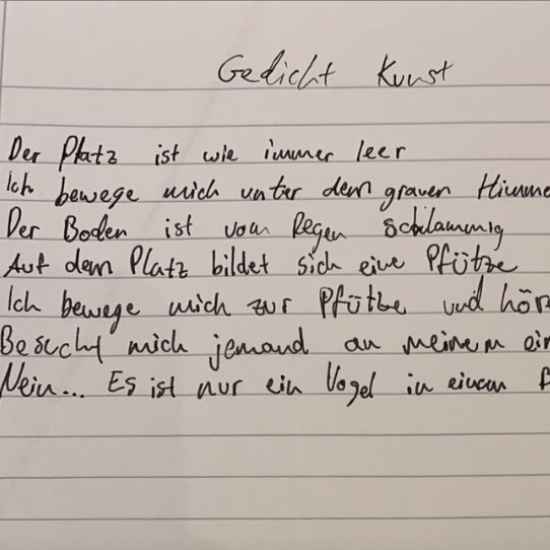 Gedicht Kunst
Der Platz ist wie immer leer
Ich bewege mich unter dem grauen Himme
Der Boden ist vom Regen Schlammig
Auf dem Platz bildet sich eine Pfütze
Ich bewege mich zur Pfütze und hör
Besucht mich jemand an meinem ein
Nein... Es ist nur ein Vogel in einem